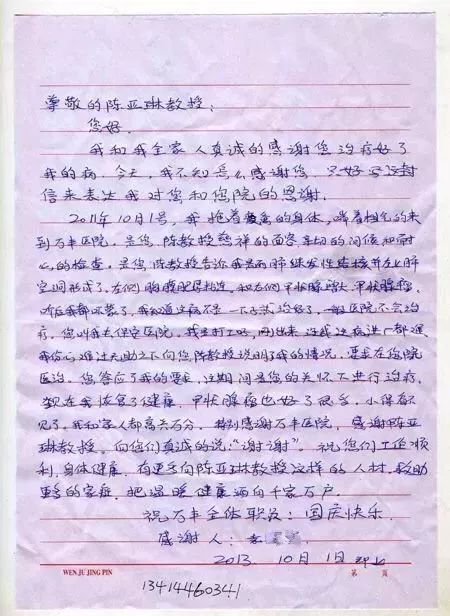 尊敬的陈亚琳教授：
您好。
我和我全家人真诚的感谢您治疗好了
我的病。今天，我不知是么感谢您，只好写这封
信来表达我对您和您院的恩谢。
2011年10月1号，我拖着的身体，喘着粗气的来
到万丰医院，是您，陈教授慈祥的面容亲切的问候和耐
心的检查，是您陈教授告诉我是两肺继发性结核并左上肺
空洞形成了，左侧胸膜肥厚粘连，和左侧甲状腺增大，甲状腺瘤，
我知道这病不是一下子就治好了，一般医院不会治
疗，您叫我去保安医院，我
我伤心难过无助之下向您陈教授说明了我的情况，要求在您院
医治，您答应了我的要求，这期间是您的关怀下进行治疗，
现在我恢复了健康，甲状腺瘤也好了很多，小得看不
见了，我和家人都高兴万分，特别感谢万丰医院，感谢陈亚
琳教授，向您们真诚的说：“谢谢”。祝您们工作顺
利，身体健康，有更多向陈亚琳教授这样的人材，救助
更多的家庭，把温暖健康洒向千家万户。
祝万丰全体职员：国庆快乐
感谢人：李
2013.10月1日
WEN JU JING PIN
第 页
13414460341